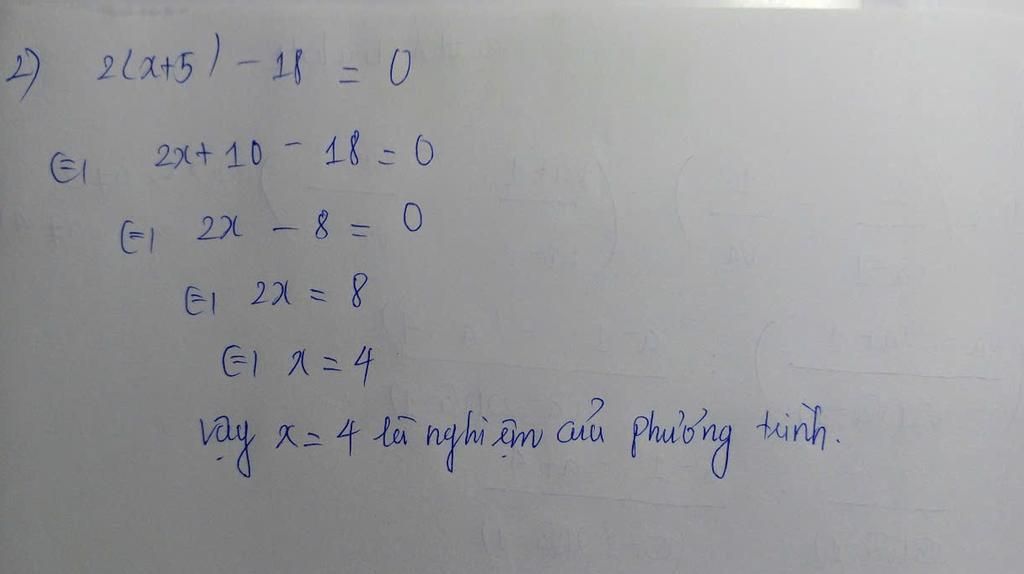 2) 2(x+5) - 18 = 0
⇔ 2x + 10 - 18 = 0
⇔ 2x - 8 = 0
⇔ 2x = 8
⇔ x = 4
Vậy x = 4 là nghiệm của phương trình.